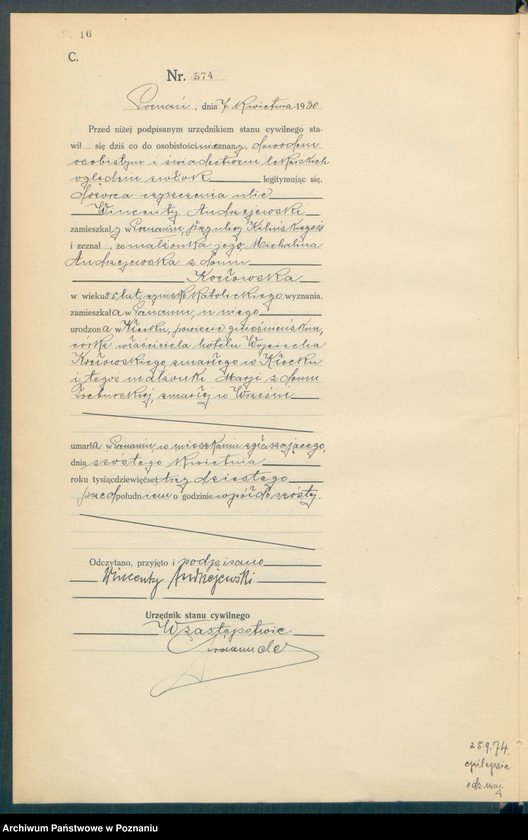 16
C.
Nr. 574
Poznań, dnia 7 Kwietnia 1930
Przed niżej podpisanym urzędnikiem stanu cywilnego sta-
wił się dziś co do osobistości nieznany, dowodem
osobistym i świadectwem lekarskich
oględzin zwłok legitymując się,
dozorca czyszczenia ulic
Wincenty Andrzejewski
zamieszkały w Poznaniu, przy ulicy
i zeznał, że małżonka jego, Michalina
Andrzejewska z domu
Kozłowska
w wieku lat, rzymsko katolickiego wyznania,
zamieszkała w Poznaniu, u niego
urodzona w Kłecku, powiecie gnieźnieńskim,
córka właściciela hotelu Wojciecha
Kozłowskiego, zmarłego w Kłecku
i tegoż małżonki Marji z domu
zmarłej w Wrześni
umarła w Poznaniu, w mieszkaniu zgłaszającego,
dnia szóstego Kwietnia
roku tysiącdziewięćset trzydziestego
przed południem o godzinie wpół do szóstej.
Odczytano, przyjęto i podpisano
Wincenty Andrzejewski
Urzędnik stanu cywilnego
W zastępstwie
28.9.74.
epilepsia
Archiwum Państwowe w Poznaniu